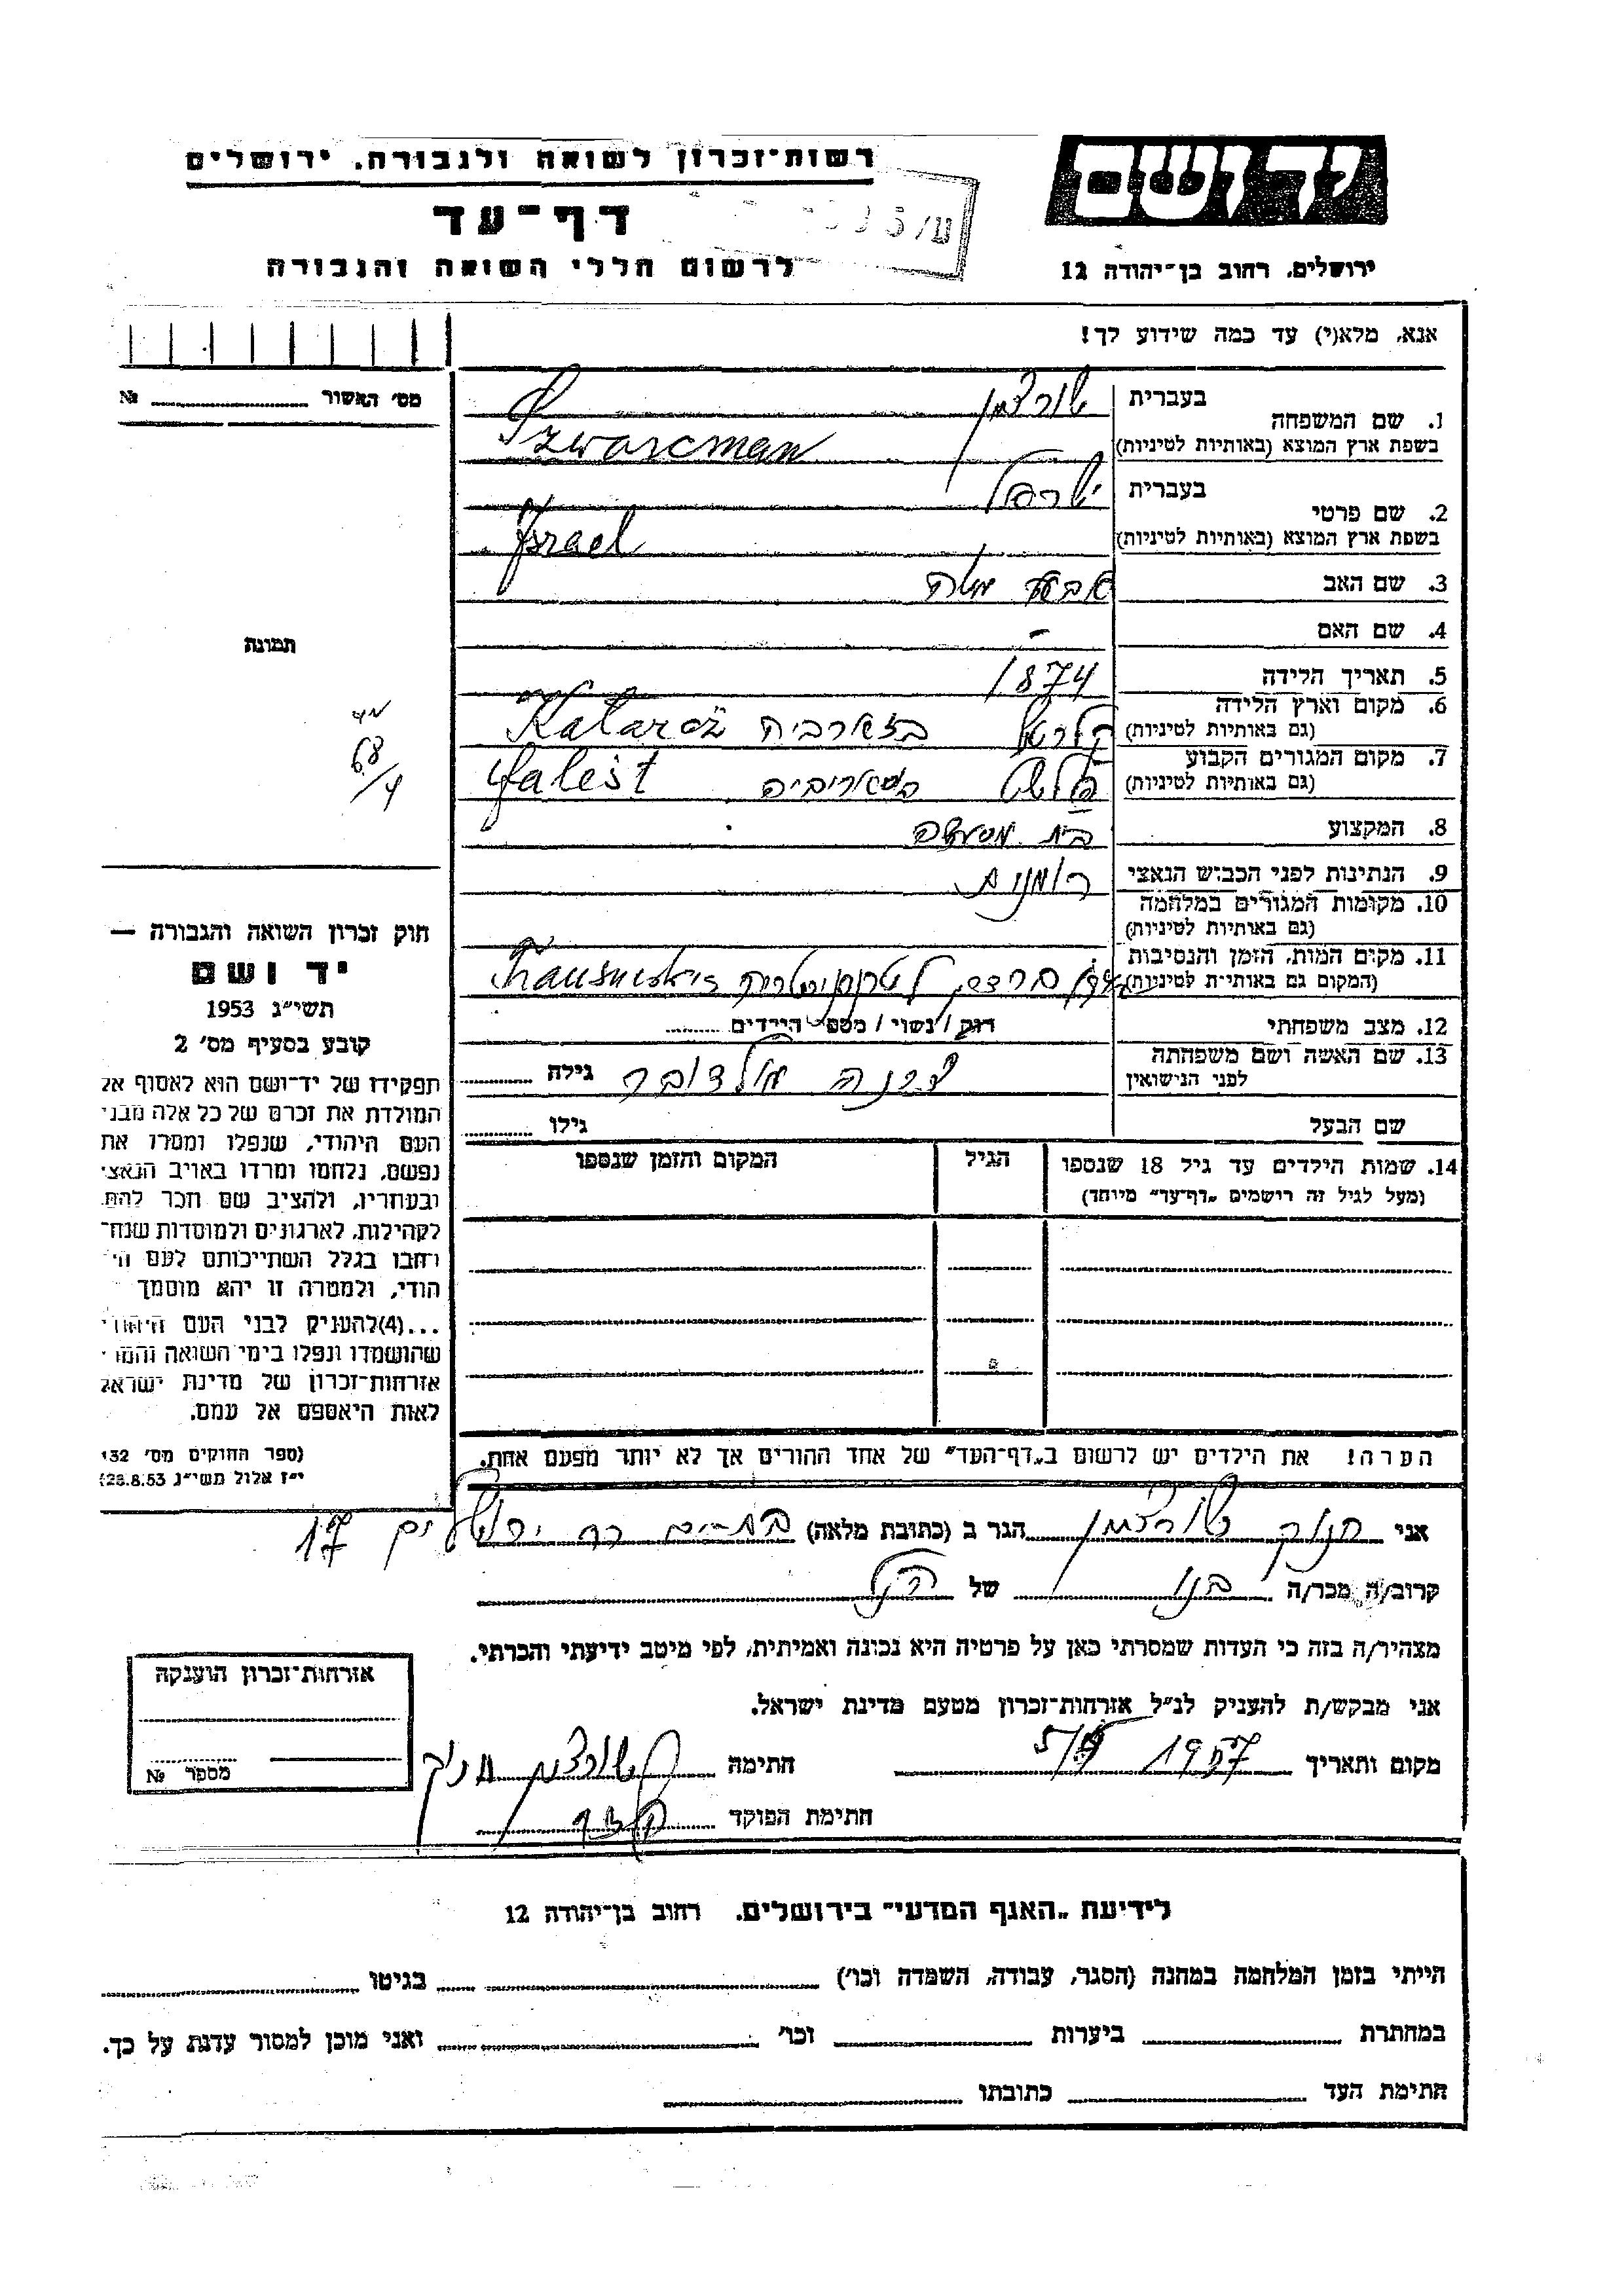 יד ושם
ירושלים, רחוב בן־יהודה 12
רשות־זכרון לשואה ולגבורה, ירושלים
דף־עד
לרשום חללי השואה והגבורה
אנא, מלא(י) עד כמה שידוע לך!
מס׳ האשור № 
תמונה
1. שם המשפחה
בעברית שורצמן
בשפת ארץ המוצא (באותיות לטיניות) Szwarcman
2. שם פרטי
בעברית ישראל
בשפת ארץ המוצא (באותיות לטיניות) Israel
3. שם האב משה
4. שם האם -
5. תאריך הלידה 1874
6. מקום וארץ הלידה
(גם באותיות לטיניות) בסארביה Kalaroż
7. מקום המגורים הקבוע
(גם באותיות לטיניות) פלשט בסאריביה falešt
8. המקצוע בית
9. הנתינות לפני הכבוש הנאצי רומנית
10. מקומות המגורים במלחמה
(גם באותיות לטיניות)
11. מקום המות, הזמן והנסיבות
(המקום גם באותיות לטיניות) בדרך לטרנסניסטריה
12. מצב משפחתי רוק / נשוי / מספר הילדים
13. שם האשה ושם משפחתה
לפני הנישואין גילה
שם הבעל גילו
14. שמות הילדים עד גיל 18 שנספו
(מעל לגיל זה רושמים „דף־עד" מיוחד)
הגיל
המקום והזמן שנספו
הערה! את הילדים יש לרשום ב„דף־העד" של אחד ההורים אך לא יותר מפעם אחת.
חוק זכרון השואה והגבורה —
יד ושם
תשי״ג 1953
קובע בסעיף מס׳ 2
תפקידו של יד־ושם הוא לאסוף אל
המולדת את זכרם של כל אלה מבני
העם היהודי, שנפלו ומסרו את
נפשם, נלחמו ומרדו באויב הנאצי
ובעוזריו, ולהציב שם וזכר להם,
לקהילות, לארגונים ולמוסדות שנח־
רבו בגלל השתייכותם לעם הי־
הודי, ולמטרה זו יהא מוסמך
...(4)להעניק לבני העם היהודי
שהושמדו ונפלו בימי השואה והמרי
אזרחות־זכרון של מדינת ישראל
לאות היאספם אל עמם.
(ספר החוקים מס׳ 132
י״ז אלול תשי״ג 28.8.53)
אני חנוך שורצמן הגר ב (כתובת מלאה) בת־ים רח ירושלים 17
קרוב/ה מכר/ה בנו של הנ״ל
מצהיר/ה בזה כי העדות שמסרתי כאן על פרטיה היא נכונה ואמיתית, לפי מיטב ידיעתי והכרתי.
אני מבקש/ת להעניק לנ״ל אזרחות־זכרון מטעם מדינת ישראל.
מקום ותאריך 1957 חתימה שורצמן חנוך
חתימת הפוקד
אזרחות־זכרון הוענקה
מספר №
לידיעת „האגף המדעי" בירושלים, רחוב בן־יהודה 12
הייתי בזמן המלחמה במחנה (הסגר, עבודה, השמדה וכו׳) בגיטו
במחתרת ביערות וכו׳ ואני מוכן למסור עדות על כך.
חתימת העד כתובתו